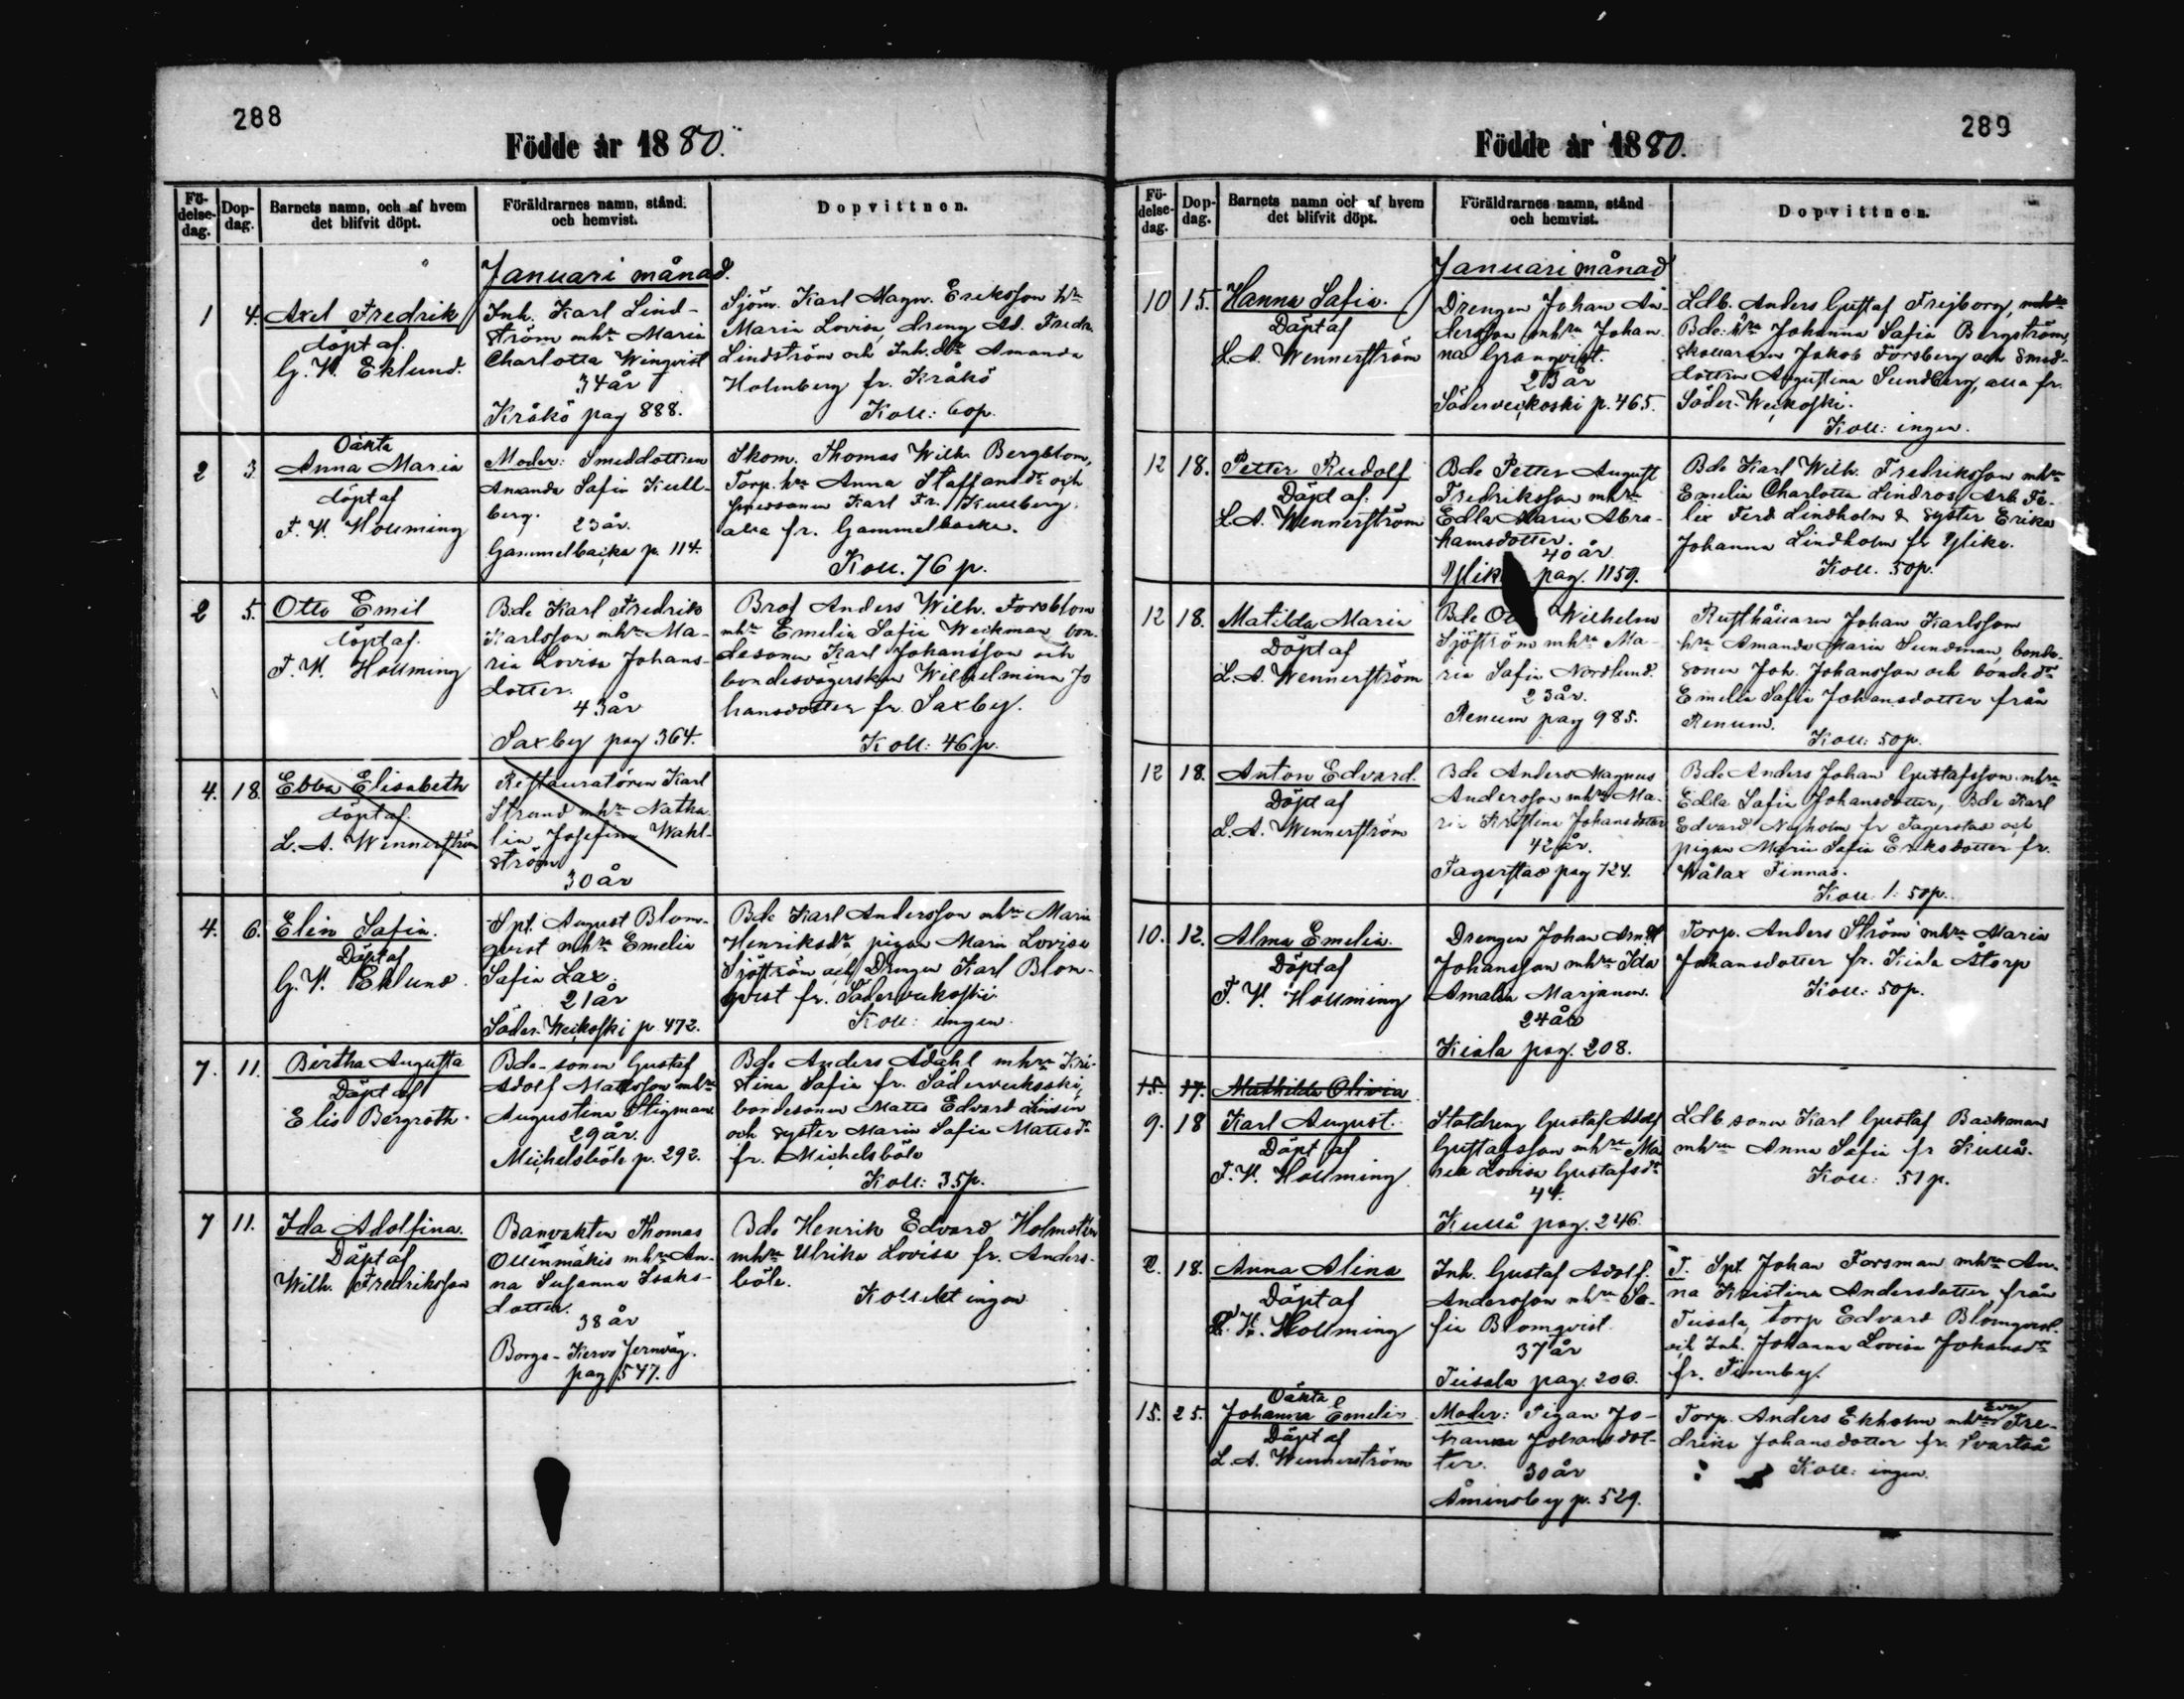 288
Födde år 1880.
Fö-
delse-
dag.
Dop-
dag.
Barnets namn, och af hvem
det blifvit döpt.
Föräldrarnes namn, stånd
och hemvist.
Dopvittnen.
Januari månad.
1
4.
Axel Fredrik
döpt af
G. V. Eklund.
Inh. Karl Lind-
ström mhra Maria
Charlotta Winqvist
34 år
Kråkö pag 888.
Sjöm. Karl Magn. Eriksson hra
Maria Lovisa, dreng Ad. Fredr.
Lindström och Inh. dr Amanda
Holmberg fr. Kråkö
Koll: 60p.
2
3.
Oäkta
Anna Maria
döpt af
F. V. Hollming
Moder: Smeddottren
Amanda Safia Kull-
berg.
23 år.
Gammelbacka p. 114.
Skom. Thomas Wilh. Bergblom,
Torp. hra Anna Staffansdr och
Smedsonen Karl Fr. Kullberg
alla fr. Gammelbacka.
Koll. 76 p.
2
5.
Otto Emil
döpt af
F. V. Hollming
Bde Karl Fredrik
Karlsson mhra Ma-
ria Lovisa Johans-
dotter.
43 år
Saxby pag 364.
Anders Wilh. Forsblom
mhra Emelia Safia Weckman, bon-
desonen Karl Johansson och
bondesvägerskan Wilhelmina Jo
hansdotter fr. Saxby.
Koll: 46p.
4.
18.
Ebba Elisabeth
döpt af
L. A. Wennerström
Restauratören Karl
Strand mhra Natha-
lia Josefina Wahl-
ström
30 år
4.
6.
Elin Safia.
Döpt af
G. V. Eklund.
Spt. August Blom-
qvist mhra Emelia
Safia Lax.
21 år
Söder-Weckoski p. 472.
Bde Karl Andersson mhra Maria
Henriksdr, pigan Maria Lovisa
Sjöström och Drengen Karl Blom-
qvist fr. Söderveckoski
Koll: ingen.
7.
11.
Bertha Augusta
Döpt af
Elis Bergroth.
Bde-sonen Gustaf
Adolf Matsson mhra
Augustina Stigman.
29 år.
Mickelsböle p. 292.
Bde Anders Ådahl mhra Kri-
stina Safia fr. Söderveckoski,
bondesonen Matts Edvard
och syster Maria Safia Mattsdr
fr. Mickelsböle
Koll: 35p.
7
11.
Ida Adolfina.
Döpt af
Wilh. Fredriksson
Banvakten Thomas
Ollinmäkis mhra An-
na Susanna Isaks-
dotter.
38 år
Borgå-Kervo Jernväg.
pag 547.
Bde Henrik Edvard Holmsten
mhra Ulrika Lovisa fr. Anders-
böle.
Kollekt ingen
289
Födde år 1880.
Fö-
delse-
dag.
Dop-
dag.
Barnets namn och af hvem
det blifvit döpt.
Föräldrarnes namn, stånd
och hemvist.
Dopvittnen.
Januari månad
10
15.
Hanna Safia.
Döpt af
L. A. Wennerström
Drengen Johan An-
dersson mhra Johan-
na Granqvist.
23 år
Söderveckoski p. 465.
Ldb. Anders Gustaf Frejborg, mhra
Bde. hra Johanna Safia Bergström,
Jakob Forsberg och Smed-
dottren Augustina Sundberg, alla fr.
Söder-Weckoski.
Koll: ingen.
12
18.
Petter Rudolf
Döpt af
L. A. Wennerström
Bde Petter August
Fredriksson mhra
Edla Maria Abra-
hamsdotter.
40 år
pag. 1159.
Bde Karl Wilh. Fredriksson mhra
Emelia Charlotta Lindros, Arb. Fe-
lix Ferd. Lindholm & syster Erika
Johanna Lindholm fr Ylike.
Koll. 50p.
12
18.
Matilda Maria
Döpt af
L. A. Wennerström
Bde Wilhelm
Sjöström mhra Ma-
ria Safia Nordlund.
23 år.
Renum pag 985.
Rusthållaren Johan Karlsson
hra Amanda Maria Sundman, bonde-
sonen Joh. Johansson och bondedr
Emelia Safia Johansdotter från
Renum.
Koll: 50p.
12
18.
Anton Edvard.
Döpt af
L. A. Wennerström
Bde Anders Magnus
Andersson mhra Ma-
ria Kristina Johansdotter
42 år.
Fagerstad pag 724.
Bde Anders Johan Gustafsson mhra
Edla Safia Johansdotter, Bde Karl
Edvard Nyholm fr Fagerstad och
pigan Maria Safia Eriksdotter fr.
Wålax Finnas.
Koll 1: 50p.
10.
12.
Alma Emelia.
Döpt af
F. V. Hollming
Drengen Johan
Johansson mhra Ida
Amalia Marjanen.
24 år
Kiala pag. 208.
Torp. Anders Ström mhra Maria
Johansdotter fr. Kiala Åtorp
Koll: 50p.
15.
17.
Mathilda Olivia
9.
18
Karl August.
Döpt af
F. V. Hollming
Statdreng Gustaf Adolf
Gustafsson mhra Ma-
ria Lovisa Gustafsdr
44.
Kullå pag. 246.
Ldb sonen Karl Gustaf Backman
mhra Anna Safia fr Kullå.
Koll: 51 p.
2.
18.
Anna Alina
Döpt af
F. V. Hollming
Inh. Gustaf Adolf
Andersson mhra Sa-
fia Blomqvist
37 år
Teisala pag. 206.
F. Spt. Johan Forsman mhra An-
na Kristina Andersdotter från
Teisala, torp Edvard Blomqvist
och Inh. Johanna Lovisa Johansdr
fr. Finnby.
15.
25.
Oäkta
Johanna Emelia
Döpt af
L. A. Wennerström
Moder: Pigan Jo-
hanna Johansdot-
ter.
30 år
Åminsby p. 529.
Torp. Anders Ekholm mhra Eva Fre-
drika Johansdotter fr. Svartså
Koll: ingen.